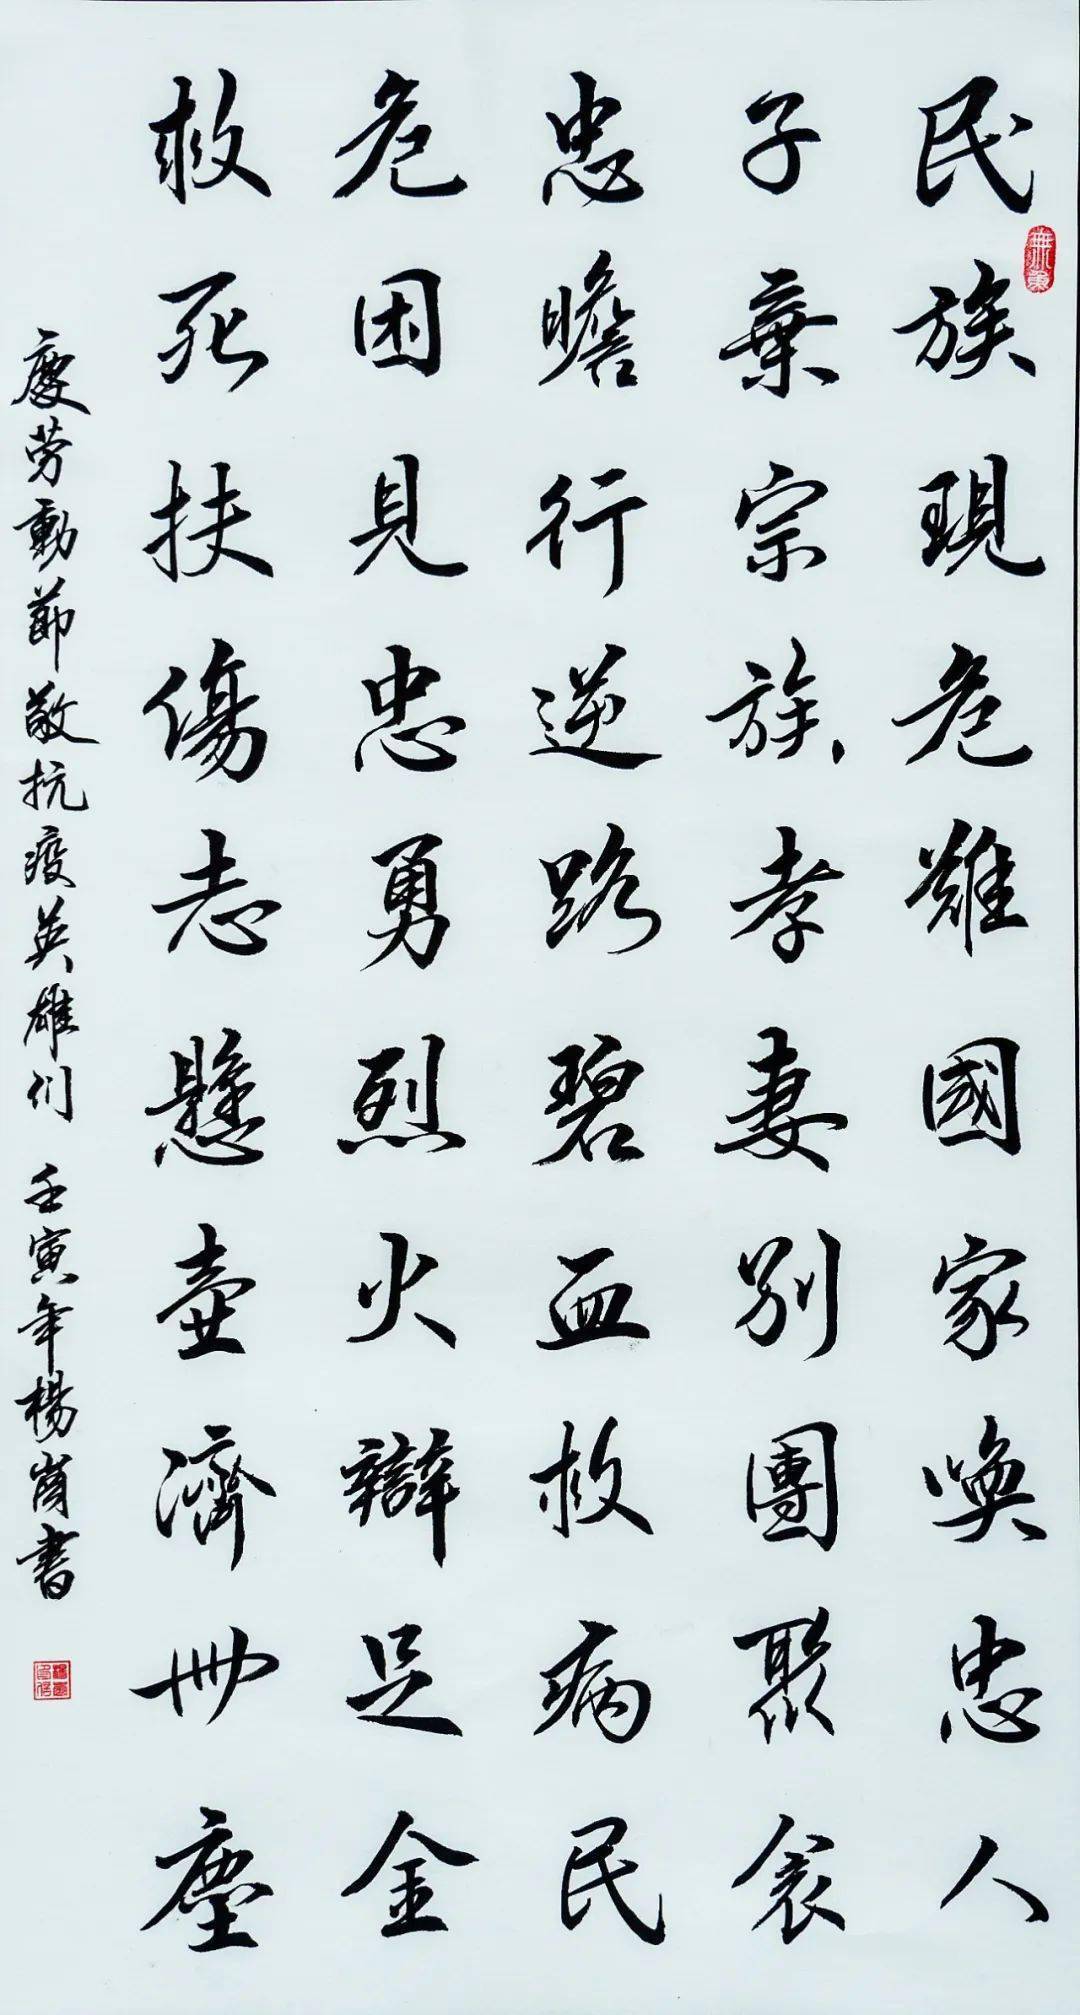 民族現危難國家喚忠人
子棄宗族孝妻別團聚衾
忠瞻行逆路碧血救病民
危困見忠勇烈火辯足金
救死扶傷志懸壺濟世塵
慶劳動節敬抗疫英雄们 壬寅年楊書